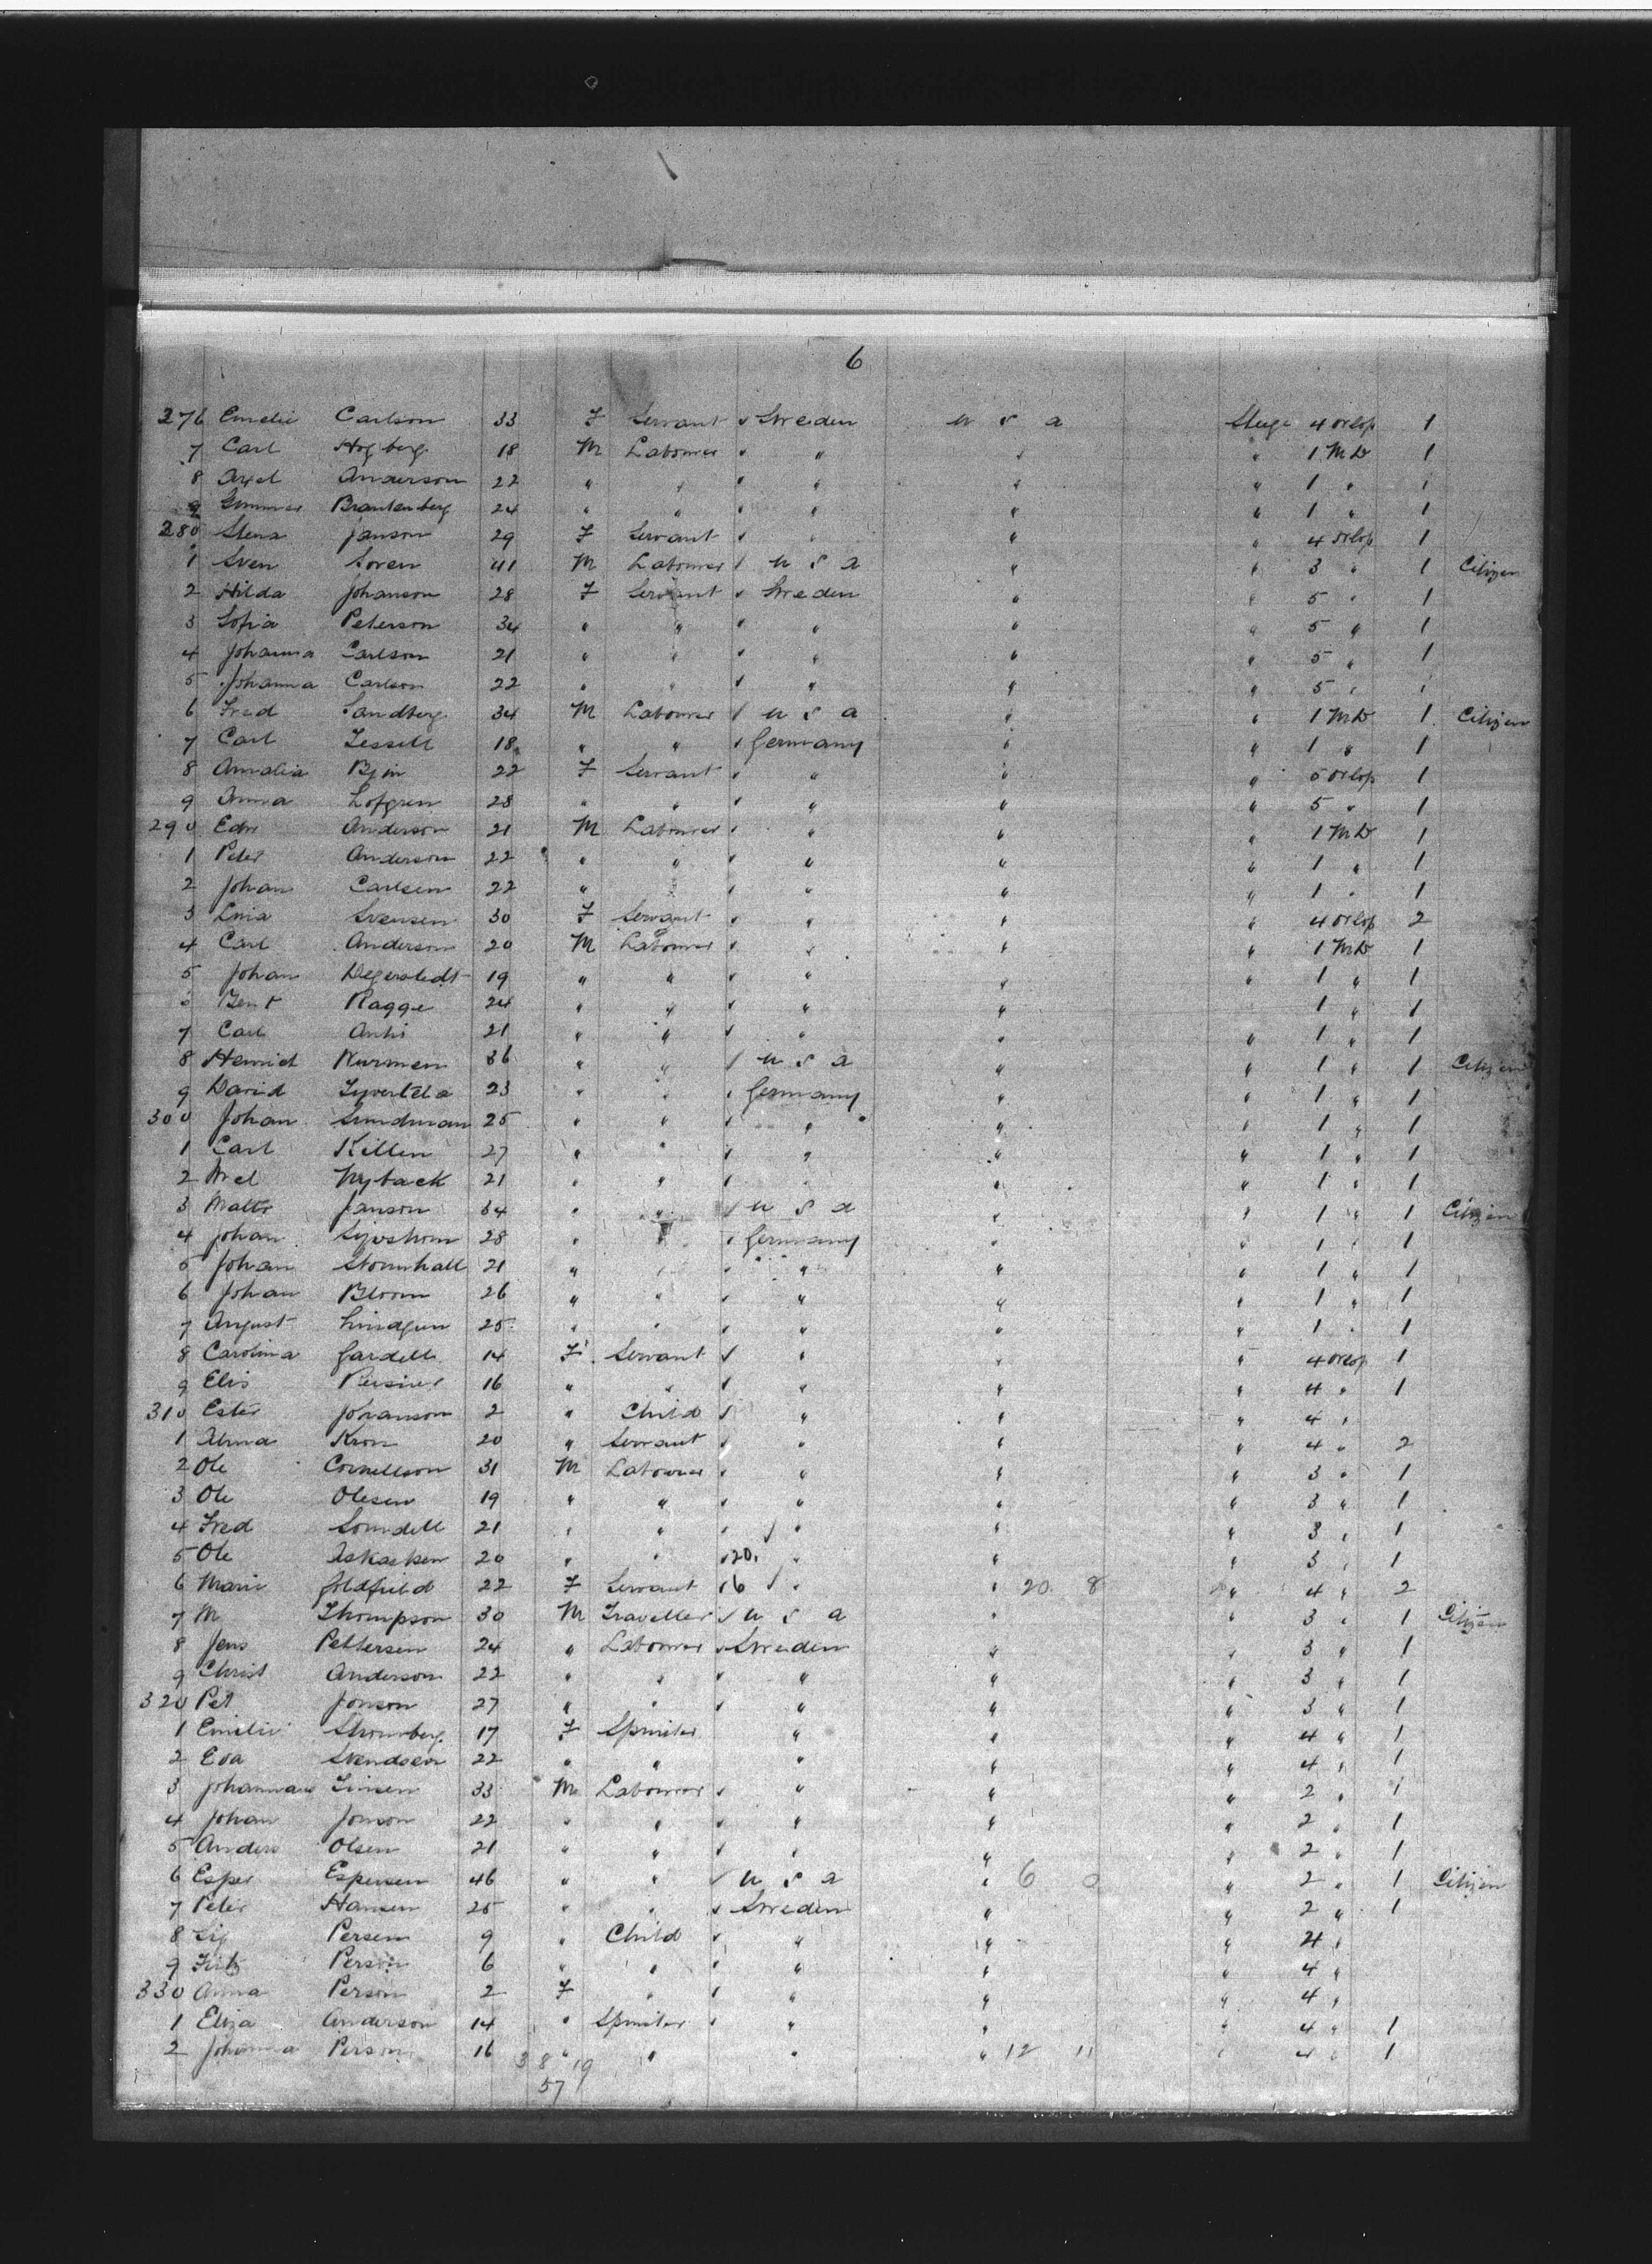 6
276 Emelie Carlson 33 F Servant Sweden U S A Steege 4 orlop 1
7 Carl Hogberg 18 M Labourer " " " 1 M D 1
8 Axel Anderson 22 " " " " " 1 " 1
9 Brantenberg 24 " " " " " 1 " 1
280 Stena Janson 29 F Servant " " " 4 orlop 1
1 Sven Soren 41 M Labourer U S A " " 3 " 1 Citizen
2 Hilda Johanson 28 F Servant Sweden " " 5 " 1
3 Sofia Peterson 34 " " " " " 5 " 1
4 Johanna Carlson 21 " " " " " 5 " 1
5 Johanna Carlson 22 " " " " " 5 " 1
6 Fred Sandberg 34 M Labourer U S A " " 1 M D 1 Citizen
7 Carl Zessell 18 " " Germany " " 1 " 1
8 Amalia 22 F Servant " " " 5 orlop 1
9 Anna Lofgren 28 " " " " " 5 " 1
290 Edw Anderson 21 M Labourer " " " 1 M D 1
1 Peter Anderson 22 " " " " " 1 " 1
2 Johan Carlsen 22 " " " " " 1 " 1
3 Lina Svensen 30 F Servant " " " 4 orlop 2
4 Carl Anderson 20 M Labourer " " " 1 M D 1
5 Johan Degerstedt 19 " " " " " 1 " 1
6 Bent Ragge 24 " " " " " 1 " 1
7 Carl 21 " " " " " 1 " 1
8 Nurmen 36 " " U S A " " 1 " 1 Citizen
9 David 23 " " Germany " " 1 " 1
300 Johan Sundman 25 " " " " " 1 " 1
1 Carl Killen 27 " " " " " 1 " 1
2 Nyback 21 " " " " " 1 " 1
3 Matts Janson 34 " " U S A " " 1 " 1 Citizen
4 Johan 28 " " Germany " " 1 " 1
5 Johan Stormhall 21 " " " " " 1 " 1
6 Johan Bloom 26 " " " " " 1 " 1
7 August Lindgren 25 " " " " " 1 " 1
8 Carolina Gardell 14 F Servant " " " 4 orlop 1
9 Elis 16 " " " " " 4 " 1
310 Ester Johanson 2 " Child " " " 4 "
1 Alma Kron 20 " Servant " " " 4 " 2
2 Ole Cornellson 31 M Labourer " " " 3 " 1
3 Ole Olesen 19 " " " " " 3 " 1
4 Fred 21 " " " " " 3 " 1
5 Ole 20 " " 20 " " " 3 " 1
6 Marie Goldfield 22 F Servant 6 " " 20 8 " 4 " 2
7 M Thompson 30 M Traveller U S A " " 3 " 1 Citizen
8 Jens Pettersen 24 " Labourer Sweden " " 3 " 1
9 Christ Anderson 22 " " " " " 3 " 1
320 Pet Jonson 27 " " " " " 3 " 1
1 Emelie Stromberg 17 F Spinster " " " 4 " 1
2 Eva Svendsen 22 " " " " " 4 " 1
3 33 M Labourer " " " 2 " 1
4 Johan Jonson 22 " " " " " 2 " 1
5 Anders Olsen 21 " " " " " 2 " 1
6 Esper Espersen 46 " " U S A " 6 0 " 2 " 1 Citizen
7 Peter Hansen 25 " " Sweden " " 2 " 1
8 Sig Persen 9 " Child " " " 4 "
9 Fritz Person 6 " " " " " 4 "
330 Anna Person 2 F " " " " 4 "
1 Eliza Anderson 14 " Spinster " " " 4 " 1
2 Johanna Person 16 " " " " 12 11 " 4 " 1
38 19
57